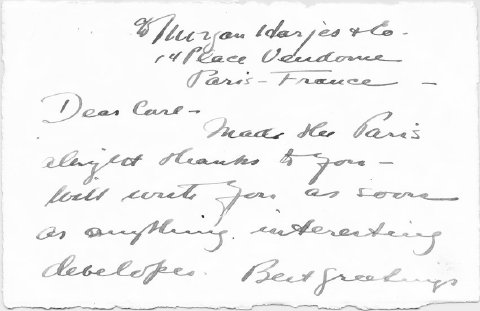 ℅ Morgan Harjes & Co.
14 Place Vendome
Paris - France -
Dear Carl -
Made the Paris
alright thanks to you -
Will write you as soon
as anything interesting
developes. Best greetings